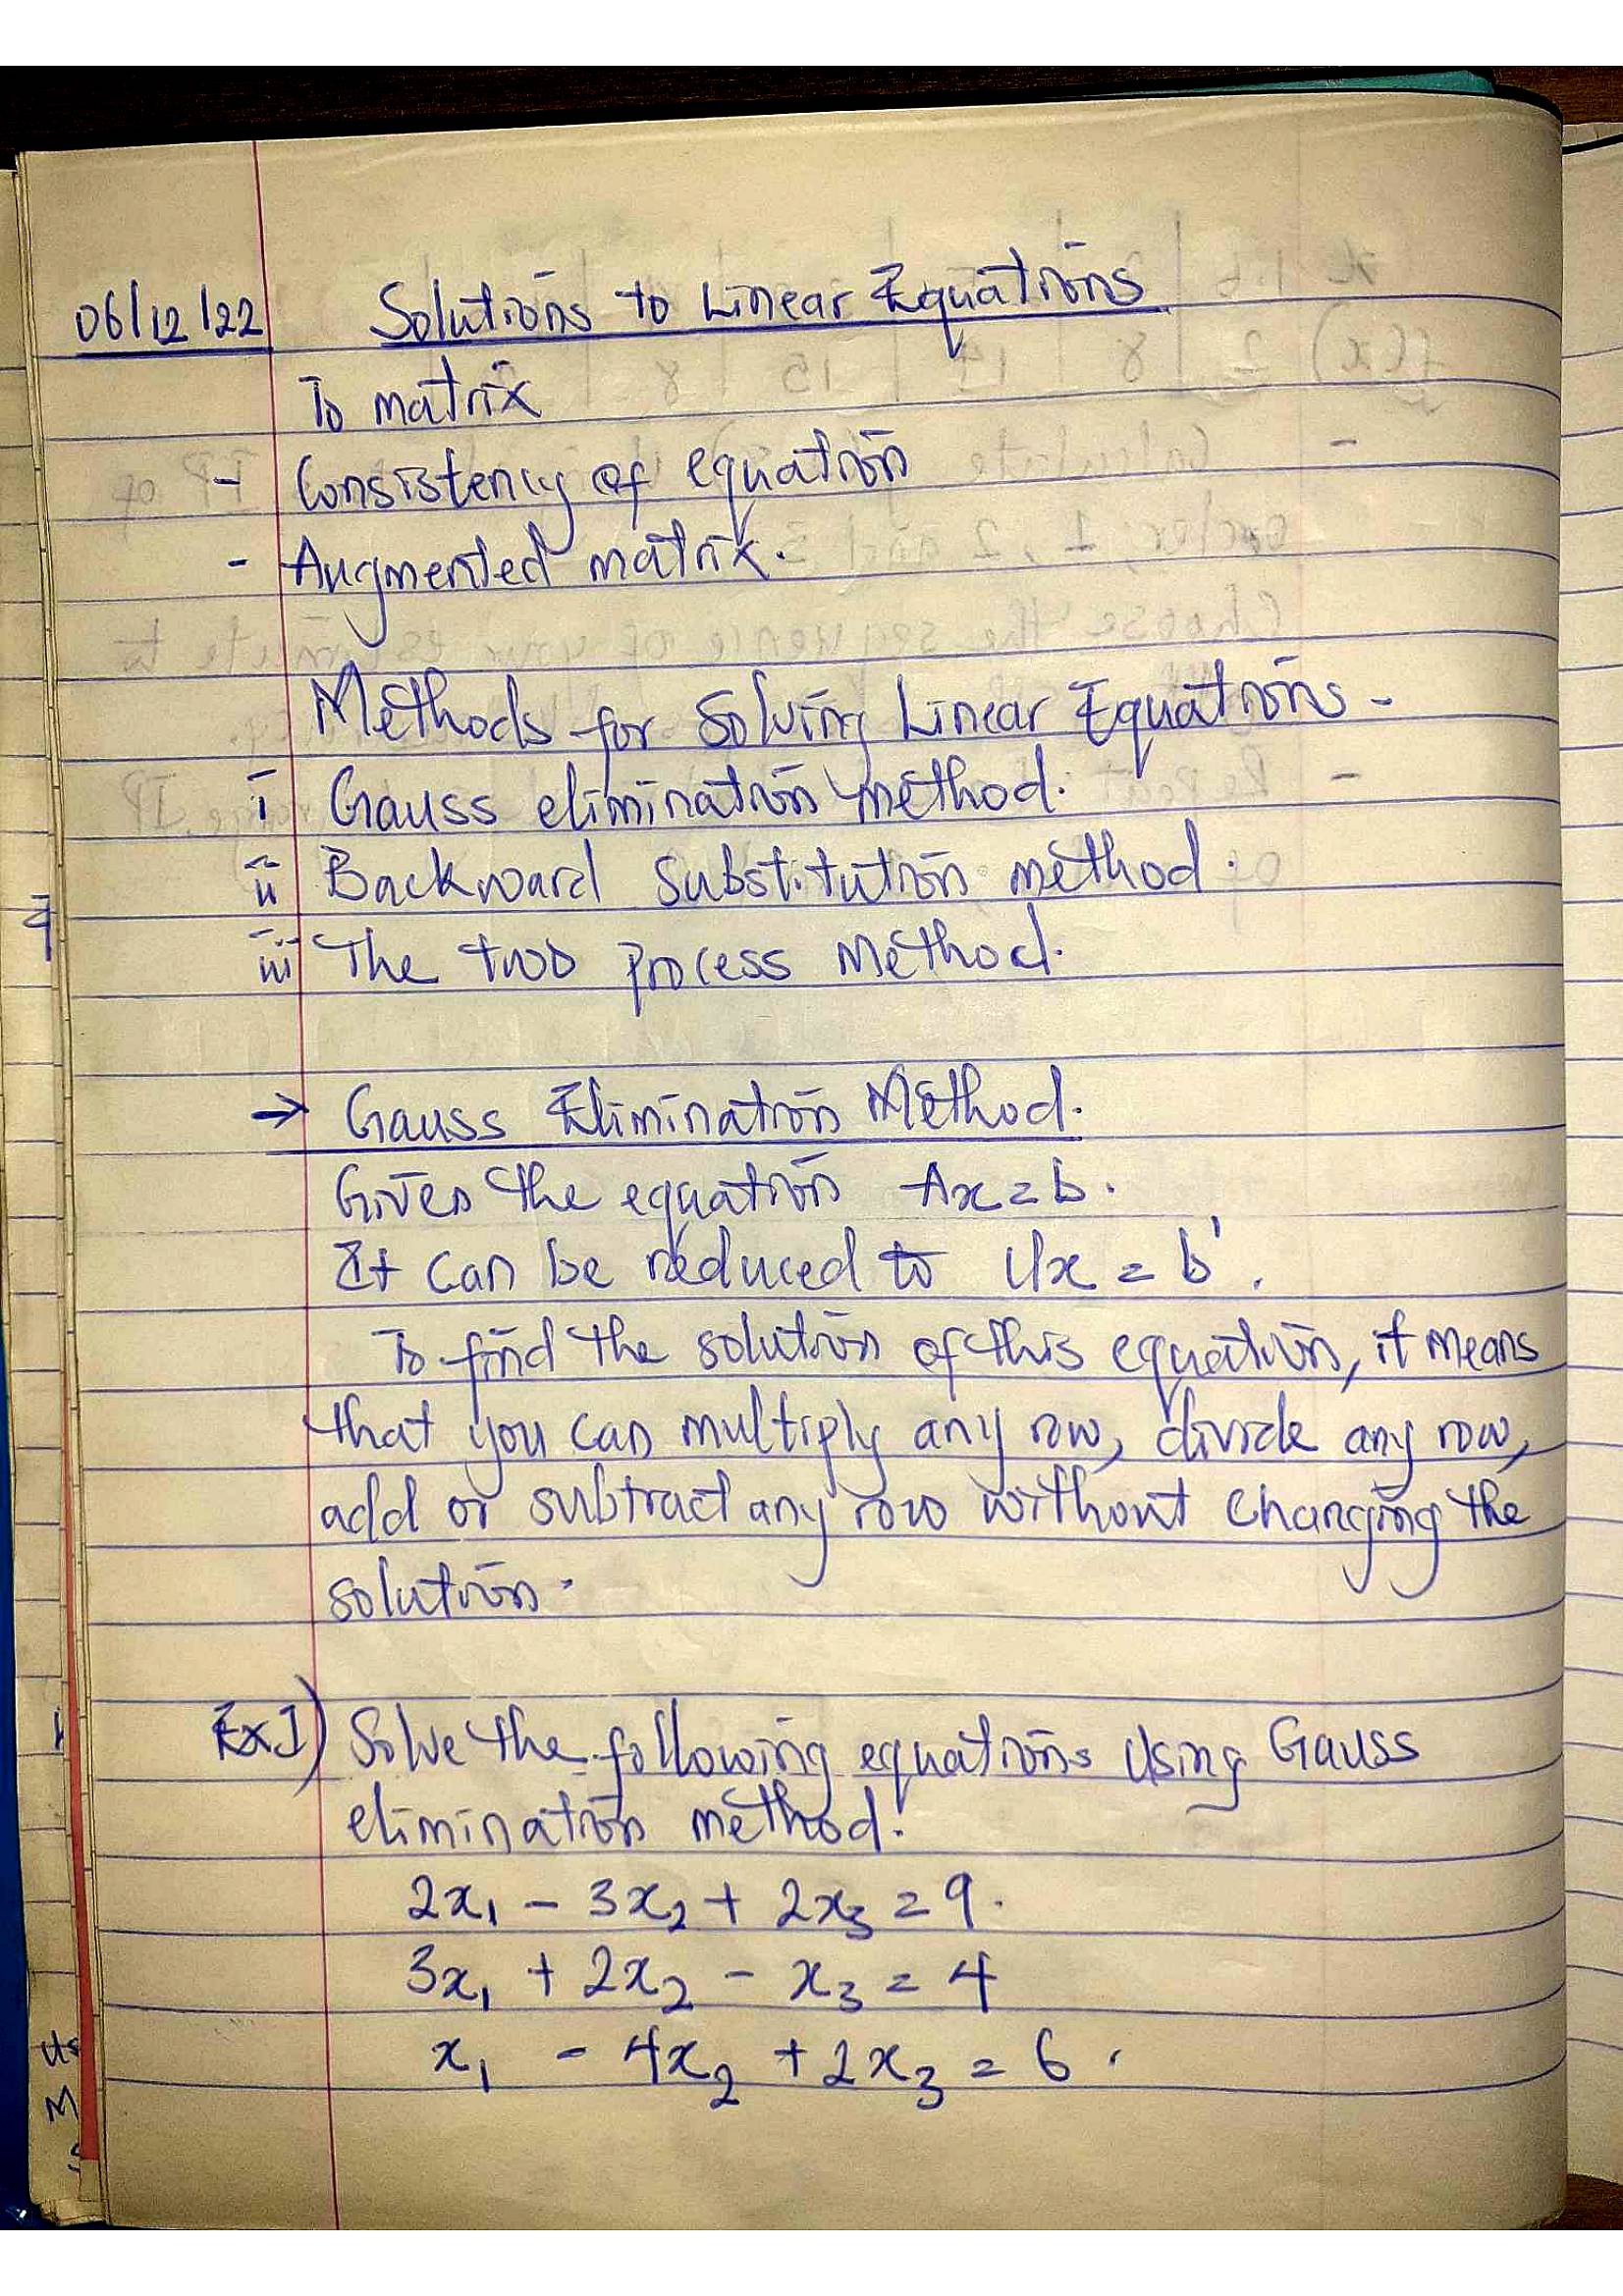 06/12/22 Solutions to Linear Equations
To matrix
- Consistency of equation
- Augmented matrix.
Methods for Solving Linear Equations -
i Gauss elimination method.
ii Backward Substitution method.
iii The two process Method.
→ Gauss Elimination Method.
Given the equation Ax = b.
It can be reduced to Ux = b'.
To find the solution of this equation, it means
that you can multiply any row, divide any row,
add or subtract any row without changing the
solution.
Ex1) Solve the following equations Using Gauss
elimination method.
2x₁ - 3x₂ + 2x₃ = 9.
3x₁ + 2x₂ - x₃ = 4
x₁ - 4x₂ + 2x₃ = 6.